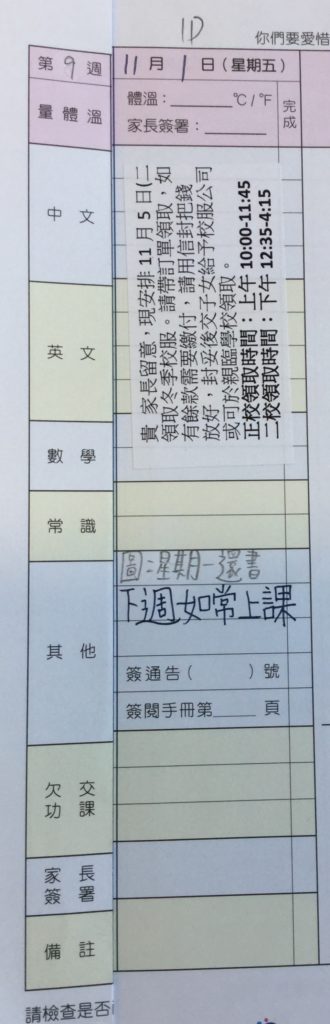 1D
你們要愛惜
第9週 11月1日(星期五)
量體溫
體溫:______℃/°F
家長簽署:______
完成
中文
貴 家長留意,現安排 11 月 5 日(二
領取冬季校服。請帶訂單領取,如
有餘款需要繳付,請用信封把錢
放好,封妥後交子女給予校服公司
或可於親臨學校領取。
正校領取時間:上午 10:00-11:45
二校領取時間:下午 12:35-4:15
英文
數學
常識
其他
圖:星期一還書
下週如常上課
簽通告( )號
簽閱手冊第______頁
欠交
功課
家長
簽署
備註
請檢查是否